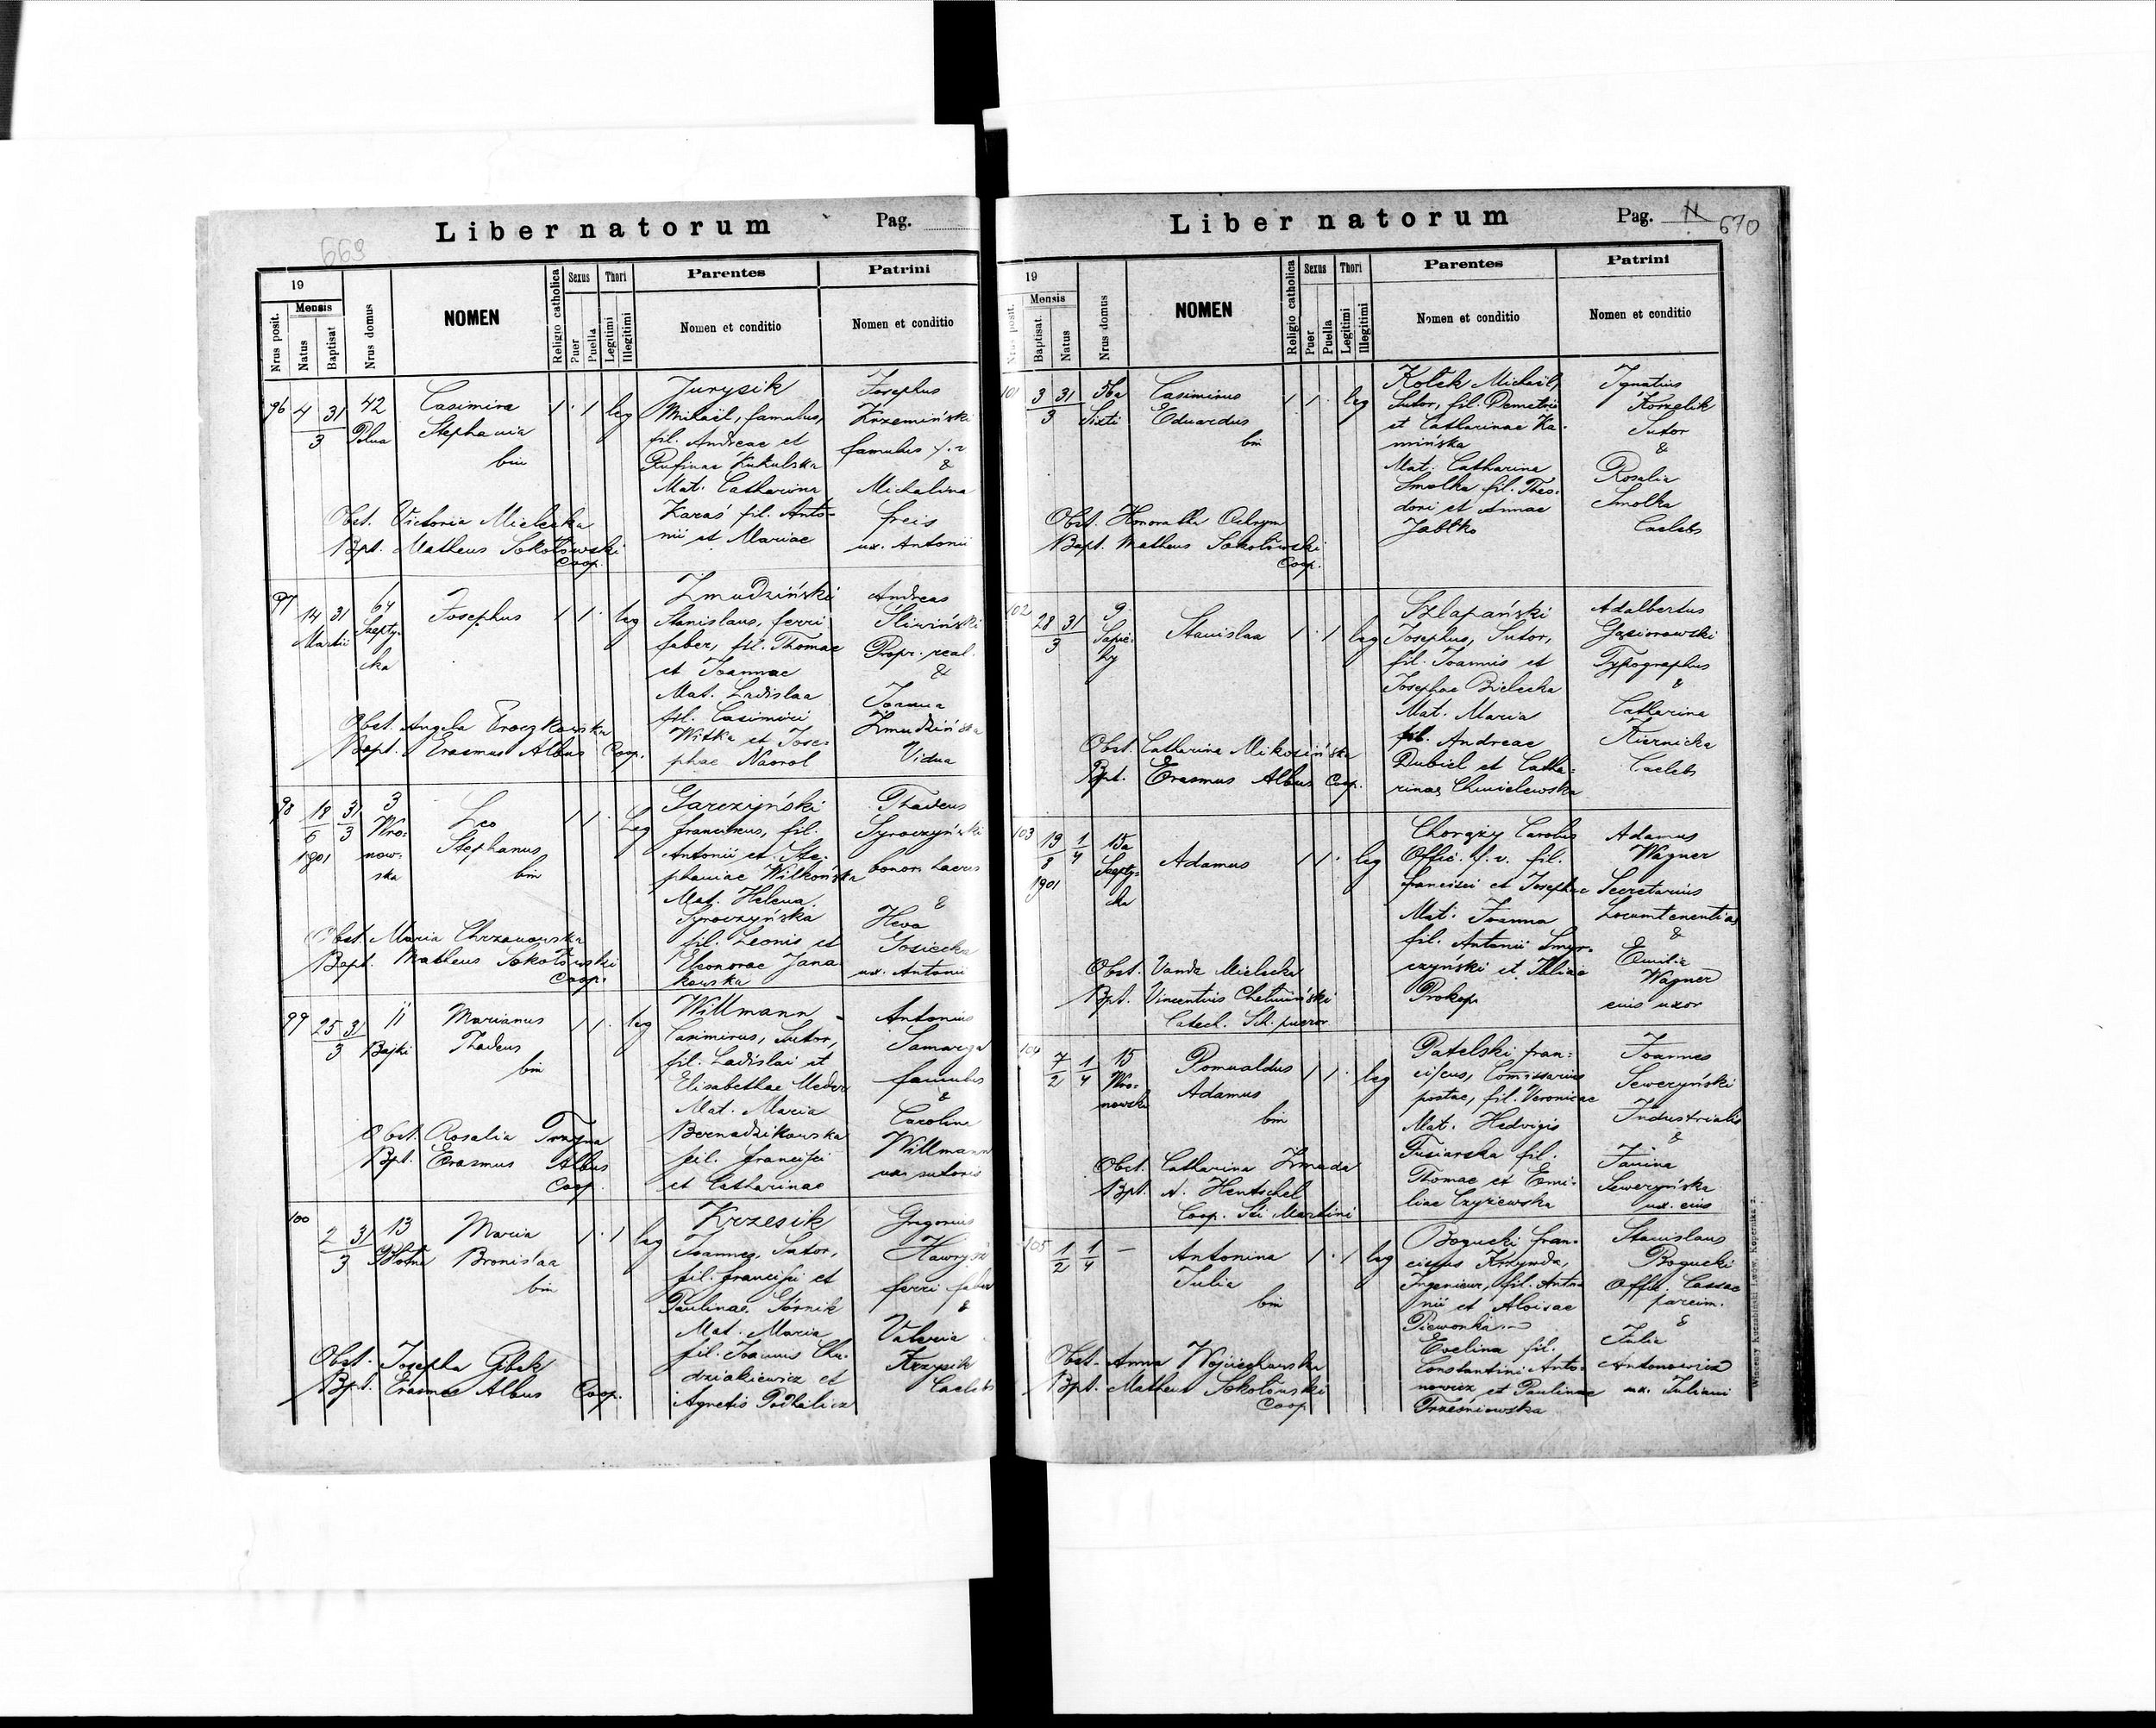 Liber natorum Pag.
669
19 NOMEN Religio catholica Sexus Thori Parentes Patrini
Nrus posit. Mensis Natus Baptisat. Nrus domus Puer Puella Legitimi Illegitimi Nomen et conditio Nomen et conditio
96 4 31 42 Casimira 1 1 leg Jurysik Josephus
3 Stephania Michaël, famulus, Krzemiński
bin fil. Andreae et famulus f. r
Rufinae &
Mat. Catharina Michalina
Obst. Victoria Mielecka Karaś fil. Anto- freis
Bpt. Matheus Sokołowski nii et Mariae ux. Antonii
Coop.
97 14 31 64 Josephus 1 1 leg Żmudziński Andreas
Martii Szepty- Stanislaus, ferri Śliwiński
cka faber, fil. Thomae Propr. real.
et Joannae &
Mat. Ladislaa Joanna
Obst. Angela fil. Casimiri Żmudzińska
Bapt. Erasmus Albus Coop. Witka et Jose- Vidua
phae
98 18 31 3 Leo 1 1 Leg Garczyński Thadeus
6 3 Wro- Stephanus franciscus, fil. Syroczyński
1901 now- bin Antonii et Ste- bonor.
ska phaniae Wilkońska &
Mat. Helena Heva
Syroczyńska Gosiecka
Obst. Maria Chrzanowska fil. Leonis et ux. Antonii
Bapt. Matheus Sokołowski Eleonorae Jana
Coop. kowska
99 25 31 11 Marianus 1 1 leg Willmann Antonius
3 Bajki Thadeus Casimirus, Sutor,
bin fil. Ladislai et famulus
Elisabethae &
Mat. Maria Carolina
Obst. Rosalia Bernadzikowska Willmann
Bpt. Erasmus Albus fil. francisci ux. sutoris
Coop. et Catharinae
100 2 31 13 Maria 1 1 leg Krzesik Gregorius
3 Błotna Bronislaa Joannes, Sutor,
bin fil. francisci et ferri faber
Paulinae Górnik &
Mat. Maria Valeria
Obst. Josepha Gibek fil. Joannis Chu-
Bpt. Erasmus Albus Coop. dziakiewicz et Caelebs
Agnetis
Liber natorum Pag. 11 670
19 NOMEN Religio catholica Sexus Thori Parentes Patrini
Nrus posit. Mensis Baptisat. Natus Nrus domus Puer Puella Legitimi Illegitimi Nomen et conditio Nomen et conditio
101 3 31 56a Casimirus 1 1 leg Kołek Michaël, Ignatius
3 Sixti Eduardus Sutor, fil. Demetrii Korzelik
bin et Catharinae Ka- Sutor
mińska &
Mat. Catharina Rosalia
Smolka fil. Theo- Smolka
Obst. Honoratha dori et Annae Caelebs
Bapt. Matheus Sokołowski Jabłko
Coop.
102 28 31 9 Stanislaa 1 1 leg Szlapański Adalbertus
3 Sapie- Josephus, Sutor, Gąsiorowski
hy fil. Joannis et Typographus
Josephae Bielecka &
Mat. Maria Catharina
Obst. Catharina Mikosińska fil. Andreae Kiernicka
Bpt. Erasmus Albus Coop. Dubiel et Catha- Caelebs
rinae Chmielewska
103 19 1 15a Adamus 1 1 leg Chorąży Carolus Adamus
8 4 Szepty- Offic. f. v. fil. Wagner
1901 cka francisci et Josephae Secretarius
Mat. Joanna Locumtenentiae
fil. Antonii Smyr- &
Obst. Vanda Mielecka czyński et Juliae Emilia
Bpt. Vincentius Chełmiński Prokop Wagner
Catech. Sch. pueror. eius uxor
104 7 1 15 Romualdus 1 1 leg Patelski fran- Joannes
2 4 Wro- Adamus ciscus, Comissarius Seweryński
nowska bin postae, fil. Veronicae Industrialis
Mat. Hedvigis &
Obst. Catharina Żmuda Tusiarska fil. Janina
Bpt. A. Hentschel Thomae et Emi- Seweryńska
Coop. Sti Martini liae Czyżewska ux. eius
105 1 1 — Antonina 1 1 leg Bogucki fran- Stanislaus
2 4 Julia ciscus Krzynda, Bogucki
bin Ingenieur, fil. Anto- Offic. Cassae
nii et Aloisae parcim.
Piwonka &
Obst. Anna Wojciechowska Evelina fil. Julia
Bpt. Matheus Sokołowski Constantini Anto- Antonowicz
Coop. nowicz et Paulinae ux. Juliani
Trześniowska
Wincenty Kuczabiński Lwów, Kopernika 2.